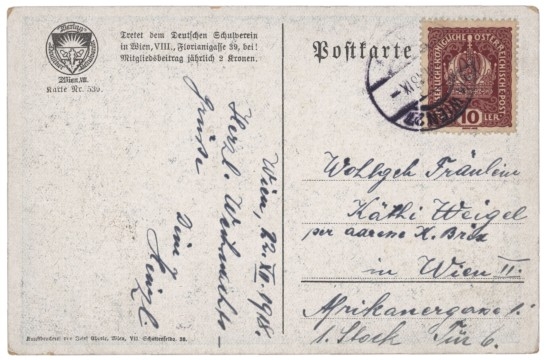 Wien, VIII.
Karte Nr. 539.
Tretet dem Deutschen Schulverein
in Wien, VIII., Florianigasse 39, bei!
Mitgliedsbeitrag jährlich 2 Kronen.
Postkarte
KAISERLICHE KÖNIGLICHE ÖSTERREICHISCHE POST
10 HELLER
WIEN
Wien, 22. XII. 1918.
Herzl. Weihnachts-
Grüsse
Dein
Heinzl.
Wohlgeb Fräulein
Käthi Weigel
per
in Wien II.
Afrikanergasse 1.
1. Stock Tür 6.
Kunstdruckerei von Josef Eberle, Wien, VII. Schottenfeldg. 38.